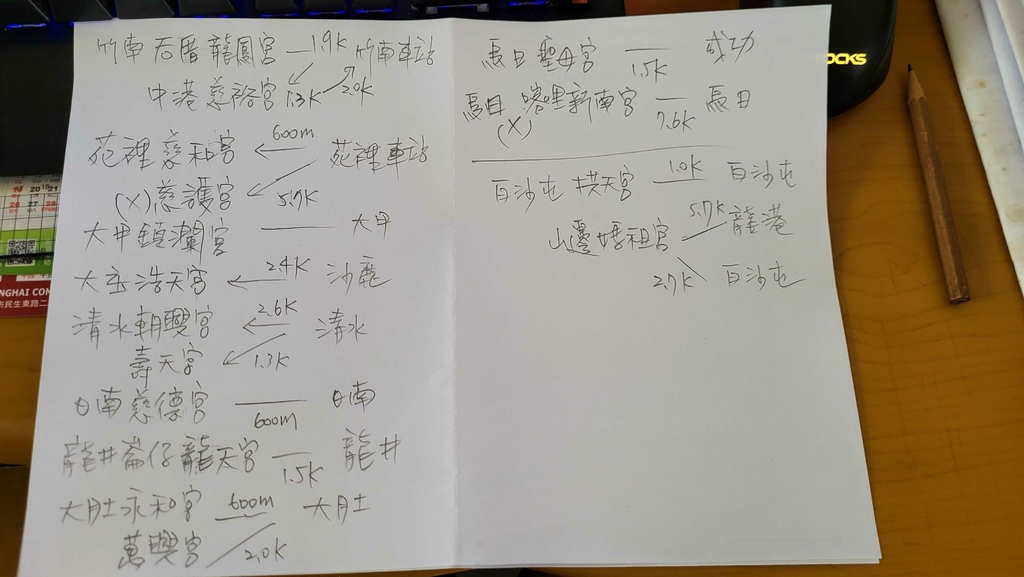 竹南后厝龍鳳宮 1.9K 竹南車站
中港慈裕宮 1.3K 2.0K
苑裡慈和宮 600m 苑裡車站
(X)慈護宮 5.7K
大甲鎮瀾宮 大甲
大庄浩天宮 2.4K 沙鹿
清水朝興宮 2.6K 清水
壽天宮 1.3K
日南慈德宮 600m 日南
龍井崙仔龍天宮 1.5K 龍井
大肚永和宮 600m 大肚
萬興宮 2.0K
聖母宮 1.5K 成功
(X) 新南宮 7.6K
白沙屯拱天宮 1.0K 白沙屯
山邊媽祖宮 5.7K 龍港
2.7K 白沙屯
OCKS
20 21
26 27 28
NGHAI COM
市民生東路二